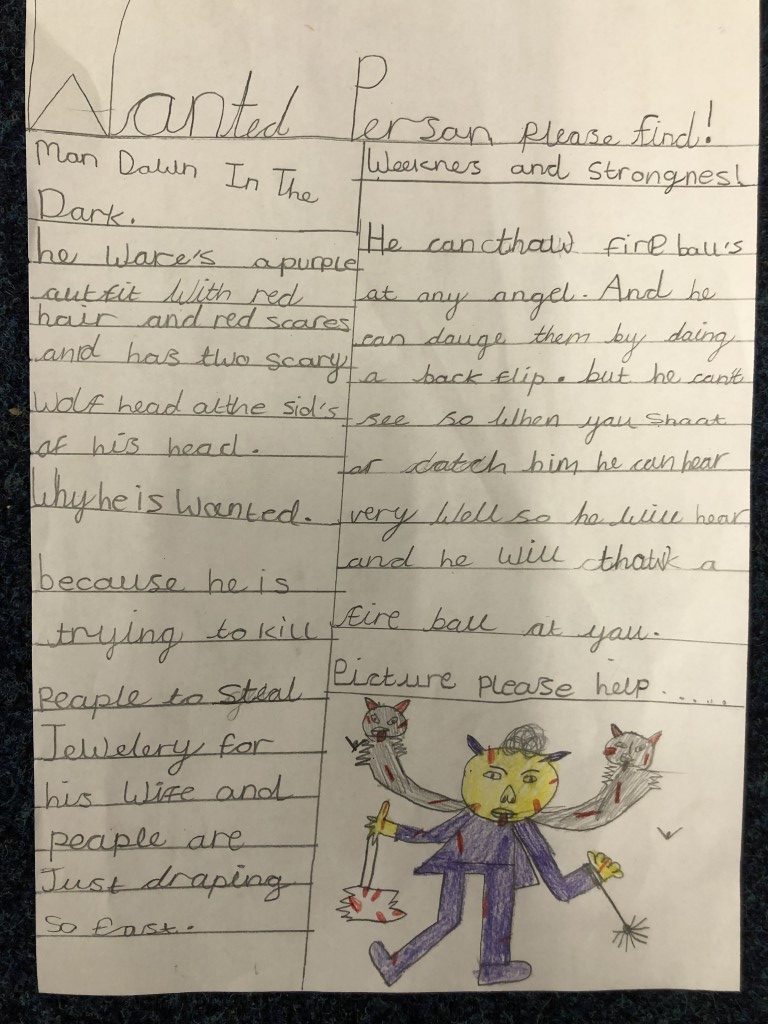 Wanted Person please find!
Man Dawn In The
Dark.
he Ware's a purple
autfit With red
hair and red scares
and has two scary
Wolf head at the sid's
af his head.
Why he is Wanted.
because he is
trying to kill
peaple to steal
Jewelery for
his Wife and
peaple are
Just draping
so fast.
Weeknes and strongnes!
He can thaw fire ball's
at any angel. And he
can dauge them by daing
a back flip. but he can't
see so When you shaat
ar catch him he can hear
very Well so he Will hear
and he Will thawk a
fire ball at you.
Picture please help.....